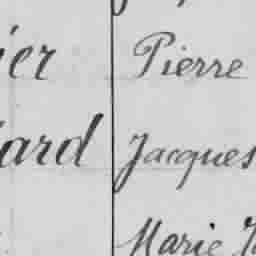 ier Pierre
iard Jacques
Marie